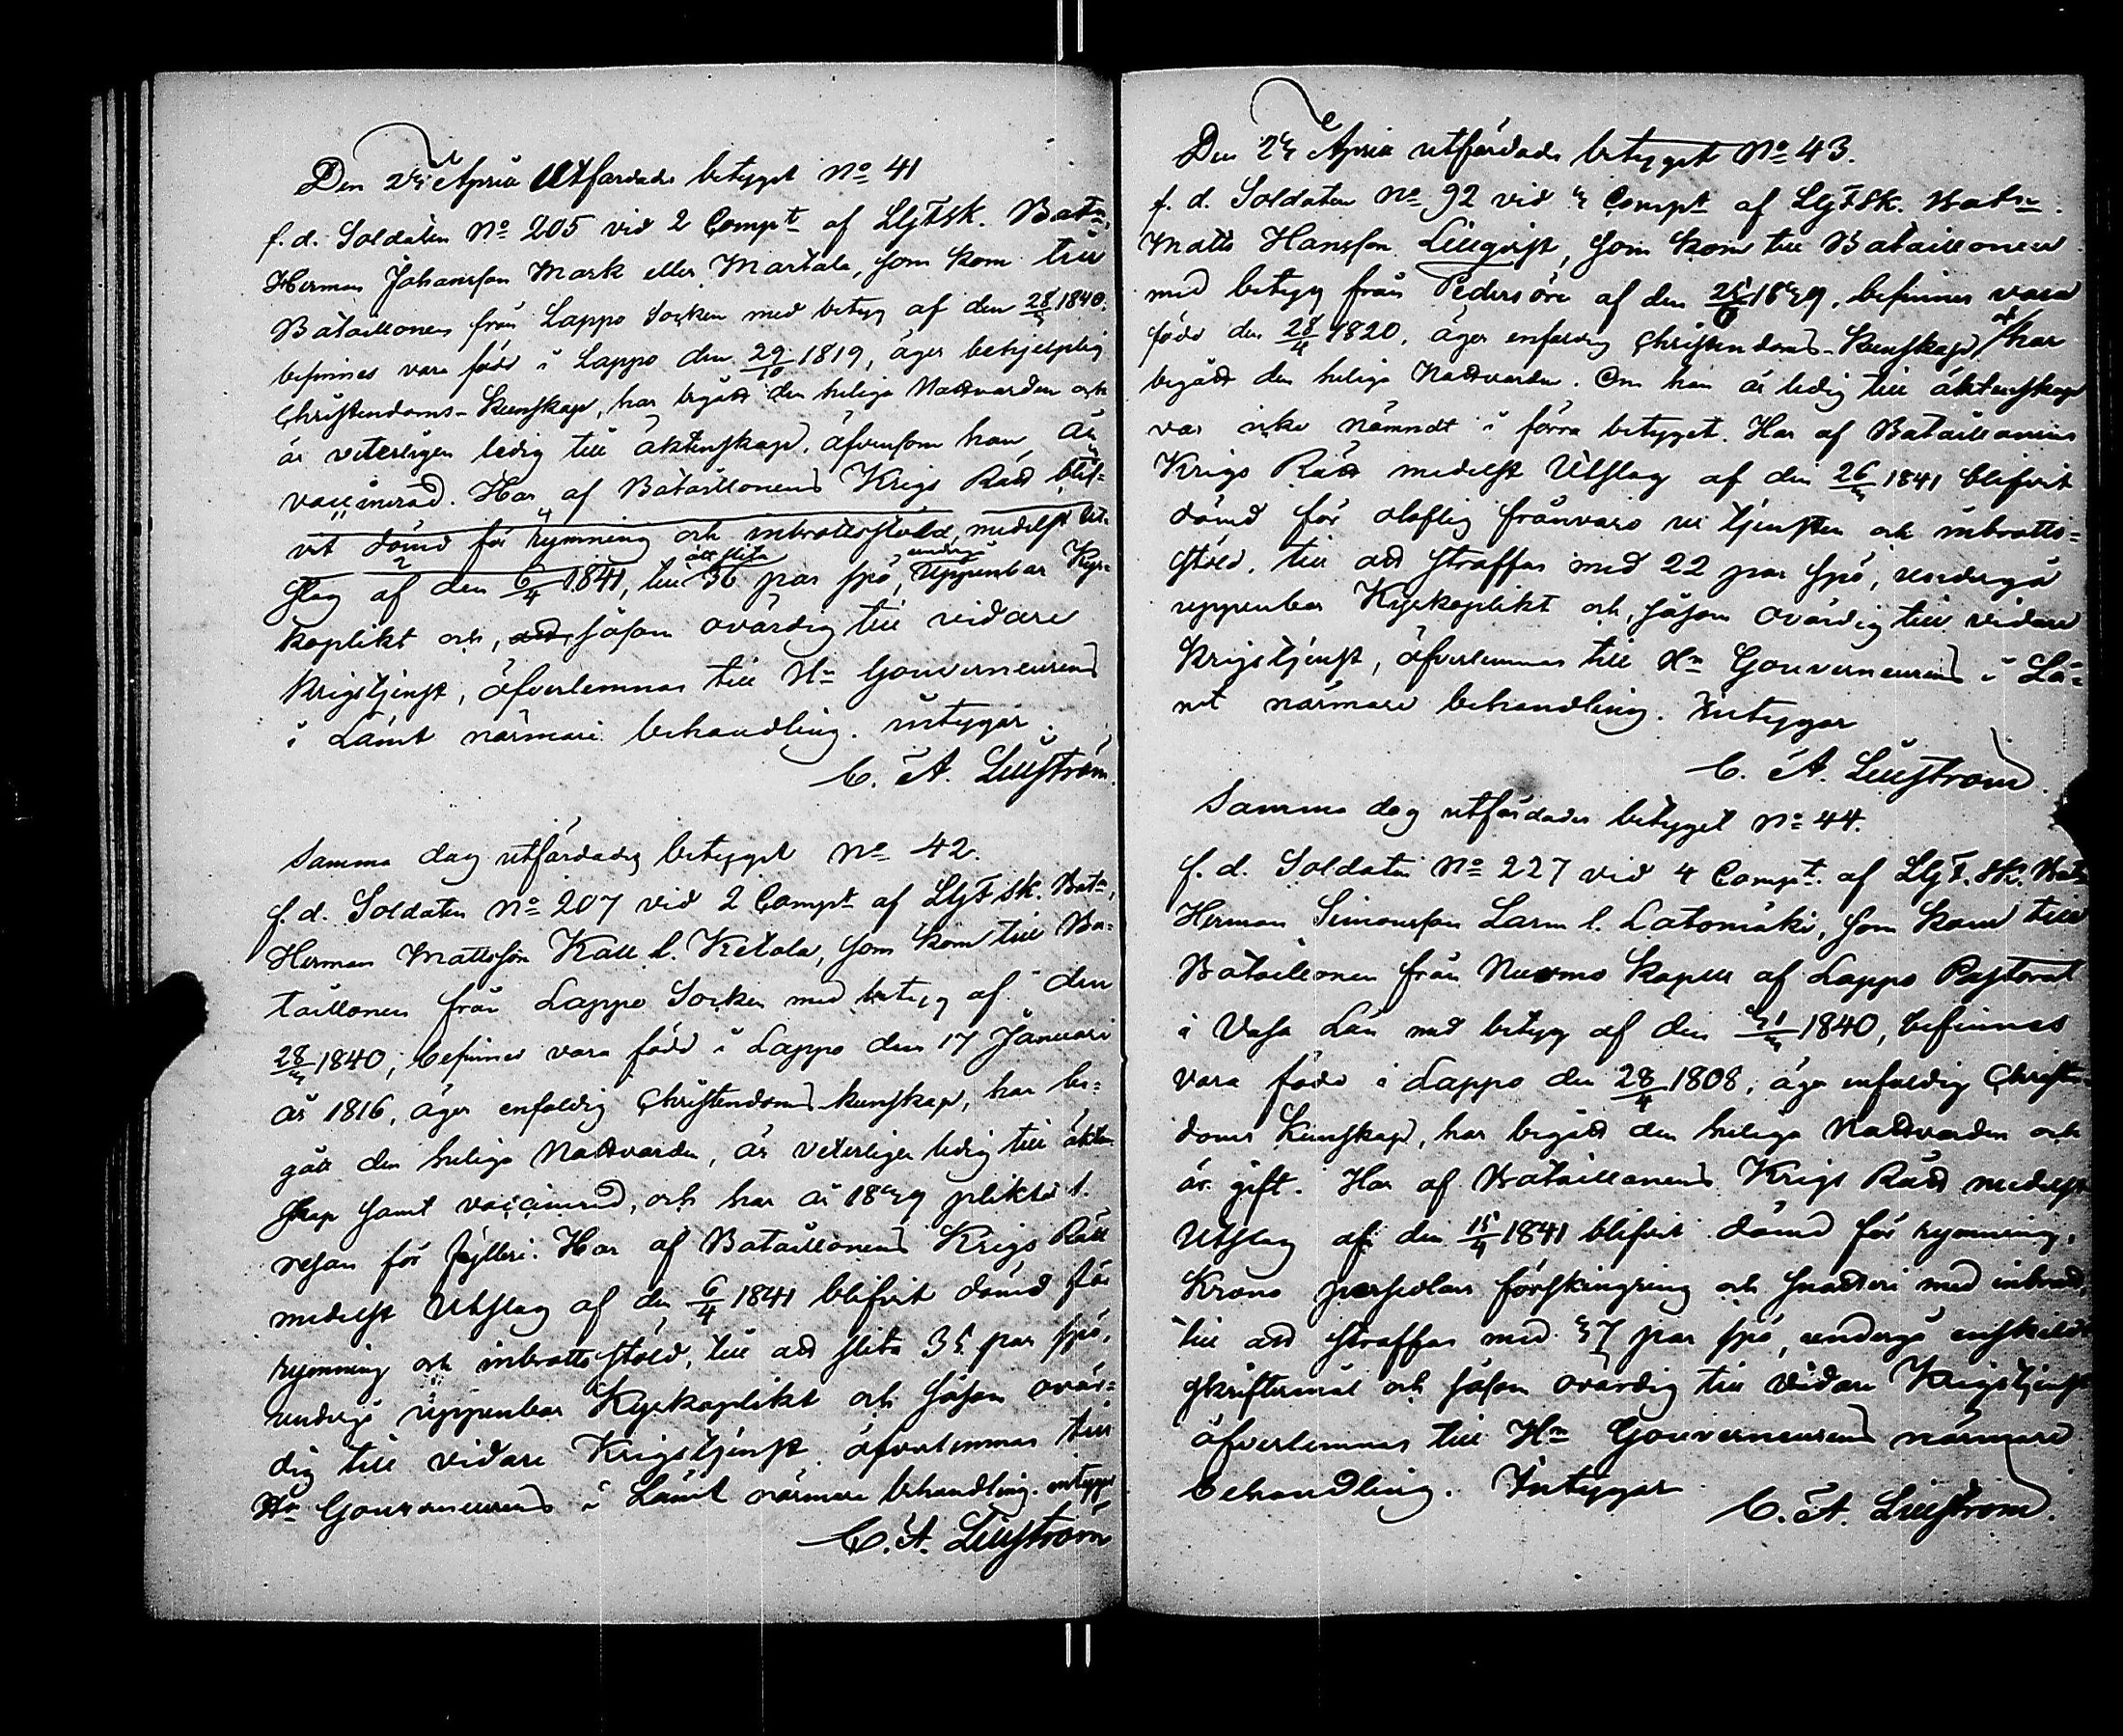 Den 23 April Utfärdades betyget No 41
f. d. Soldaten No 205 vid 2 Compt af LLjFSk. Batn.
Herman Johansson Mark eller Martala, som kom till
Bataillonen från Lappo Socken med betyg af den 28/3 1840.
befinnes vara född i Lappo den 29/10 1819, äger behjelplig
Christendoms-kunskap, har begått den heliga Nattvarden och
är veterligen ledig till äktenskap, äfvensom han är
vaccinerad. Har af Bataillonens Krigs Rätt blif-
vit dömd för rymning och inbrottsstöld, medelst Ut-
slag af den 6/4 1841, till att slita 36 par spö, undergå Uppenbar Kyr-
koplikt och, såsom ovärdig till vidare
Krigstjenst, öfverlemnas till Hn Gouverneurens
i Länet närmare behandling. intygar.
C. A. Lillström.
Samma dag utfärdades betyget No 42.
f. d. Soldaten No 207 vid 2 Compt af LLjFSk. Batn,
Herman Mattsson Kall l. Ketala, som kom till Ba-
taillonen från Lappo Socken med betyg af den
28/3 1840, befinnes vara född i Lappo den 17 Januari
år 1816, äger enfaldig Christendoms-kunskap, har be-
gått den heliga Nattvarden, är veterligen ledig till äkten-
skap samt vaccinerad, och har år 1839 pliktat 1.
resan för fylleri. Har af Bataillonens Krigs Rätt
medelst Utslag af den 6/4 1841 blifvit dömd för
rymning och inbrottsstöld, till att slita 35 par spö,
undergå uppenbar Kyrkoplikt och såsom ovär-
dig till vidare Krigstjenst öfverlemnas till
Hn Gouverneurens i Länet närmare behandling. intygar
C. A. Lillström
Den 23 April utfärdades betyget No 43.
f. d. Soldaten No 92 vid Compt af LLjFSk. Batn.
Matts Hansson Lillqvist, som kom till Bataillonen
med betyg från Pedersöre af den 1839, befinnes vara
född den 28/4 1820, äger enfaldig Christendoms-kunskap, och har
begått den heliga Nattvarden. Om han är ledig till äktenskap
var icke nämndt i förra betyget. Har af Bataillonens
Krigs Rätt medelst Utslag af den 26/3 1841 blifvit
dömd för oloflig frånvaro ur tjensten och inbrotts-
stöld, till att straffas med 22 par spö, undergå
uppenbar Kyrkoplikt och, såsom ovärdig till vidare
Krigstjenst, öfverlemnas till Hn Gouverneurens i Lä-
net närmare behandling. Intygar
C. A. Lillström.
Samma dag utfärdades betyget No 44.
f. d. Soldaten No 227 vid 4 Compt. af LLjF.Sk. Batn
Herman Simonsson Larm l. Latomäki, som kom till
Bataillonen från Nurmo Kapell af Lappo Pastorat
i Vasa Län med betyg af den 31/3 1840, befinnes
vara född i Lappo den 28/4 1808, äger enfaldig Christen-
doms Kunskap, har begått den heliga Nattvarden och
är gift. Har af Bataillonens Krigs Rätt medelst
Utslag af den 15/4 1841 blifvit dömd för rymning,
Krono persedlars förskingring och snatteri med inbrott,
till att straffas med 37 par spö, undergå enskildt
skriftermål och såsom ovärdig till vidare Krigstjenst
öfverlemnas till Hn Gouverneurens närmare
behandling. Intygar
C. A. Lillström.